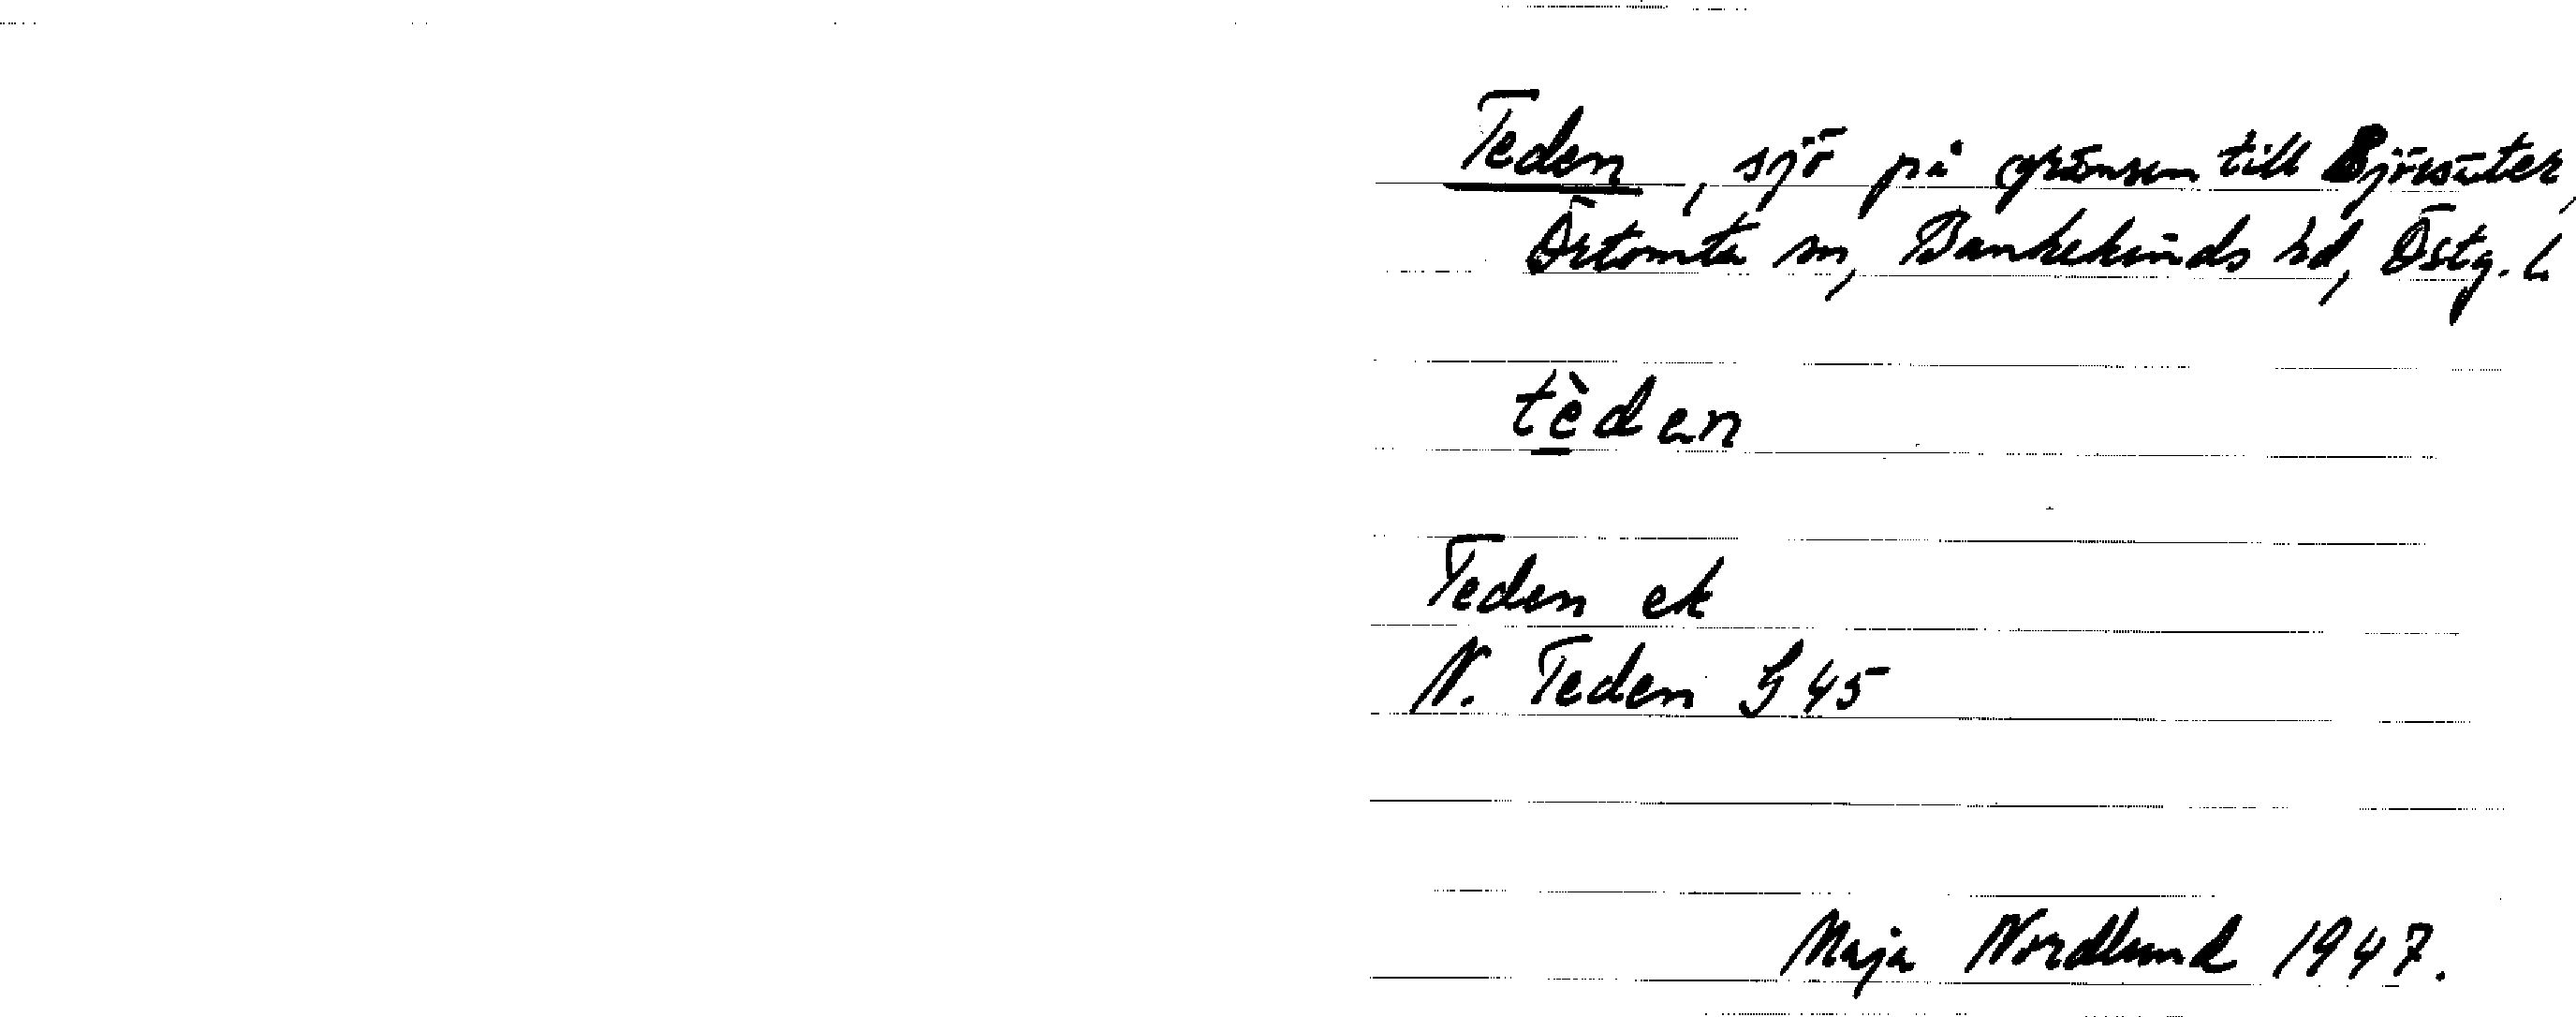 Teden, sjö på gränsen till Björsäter,
Örtomta sn, Bankekinds hd, Östg. l
tèden
Teden ek
N. Teden G 45
Maja Nordlund 1947.